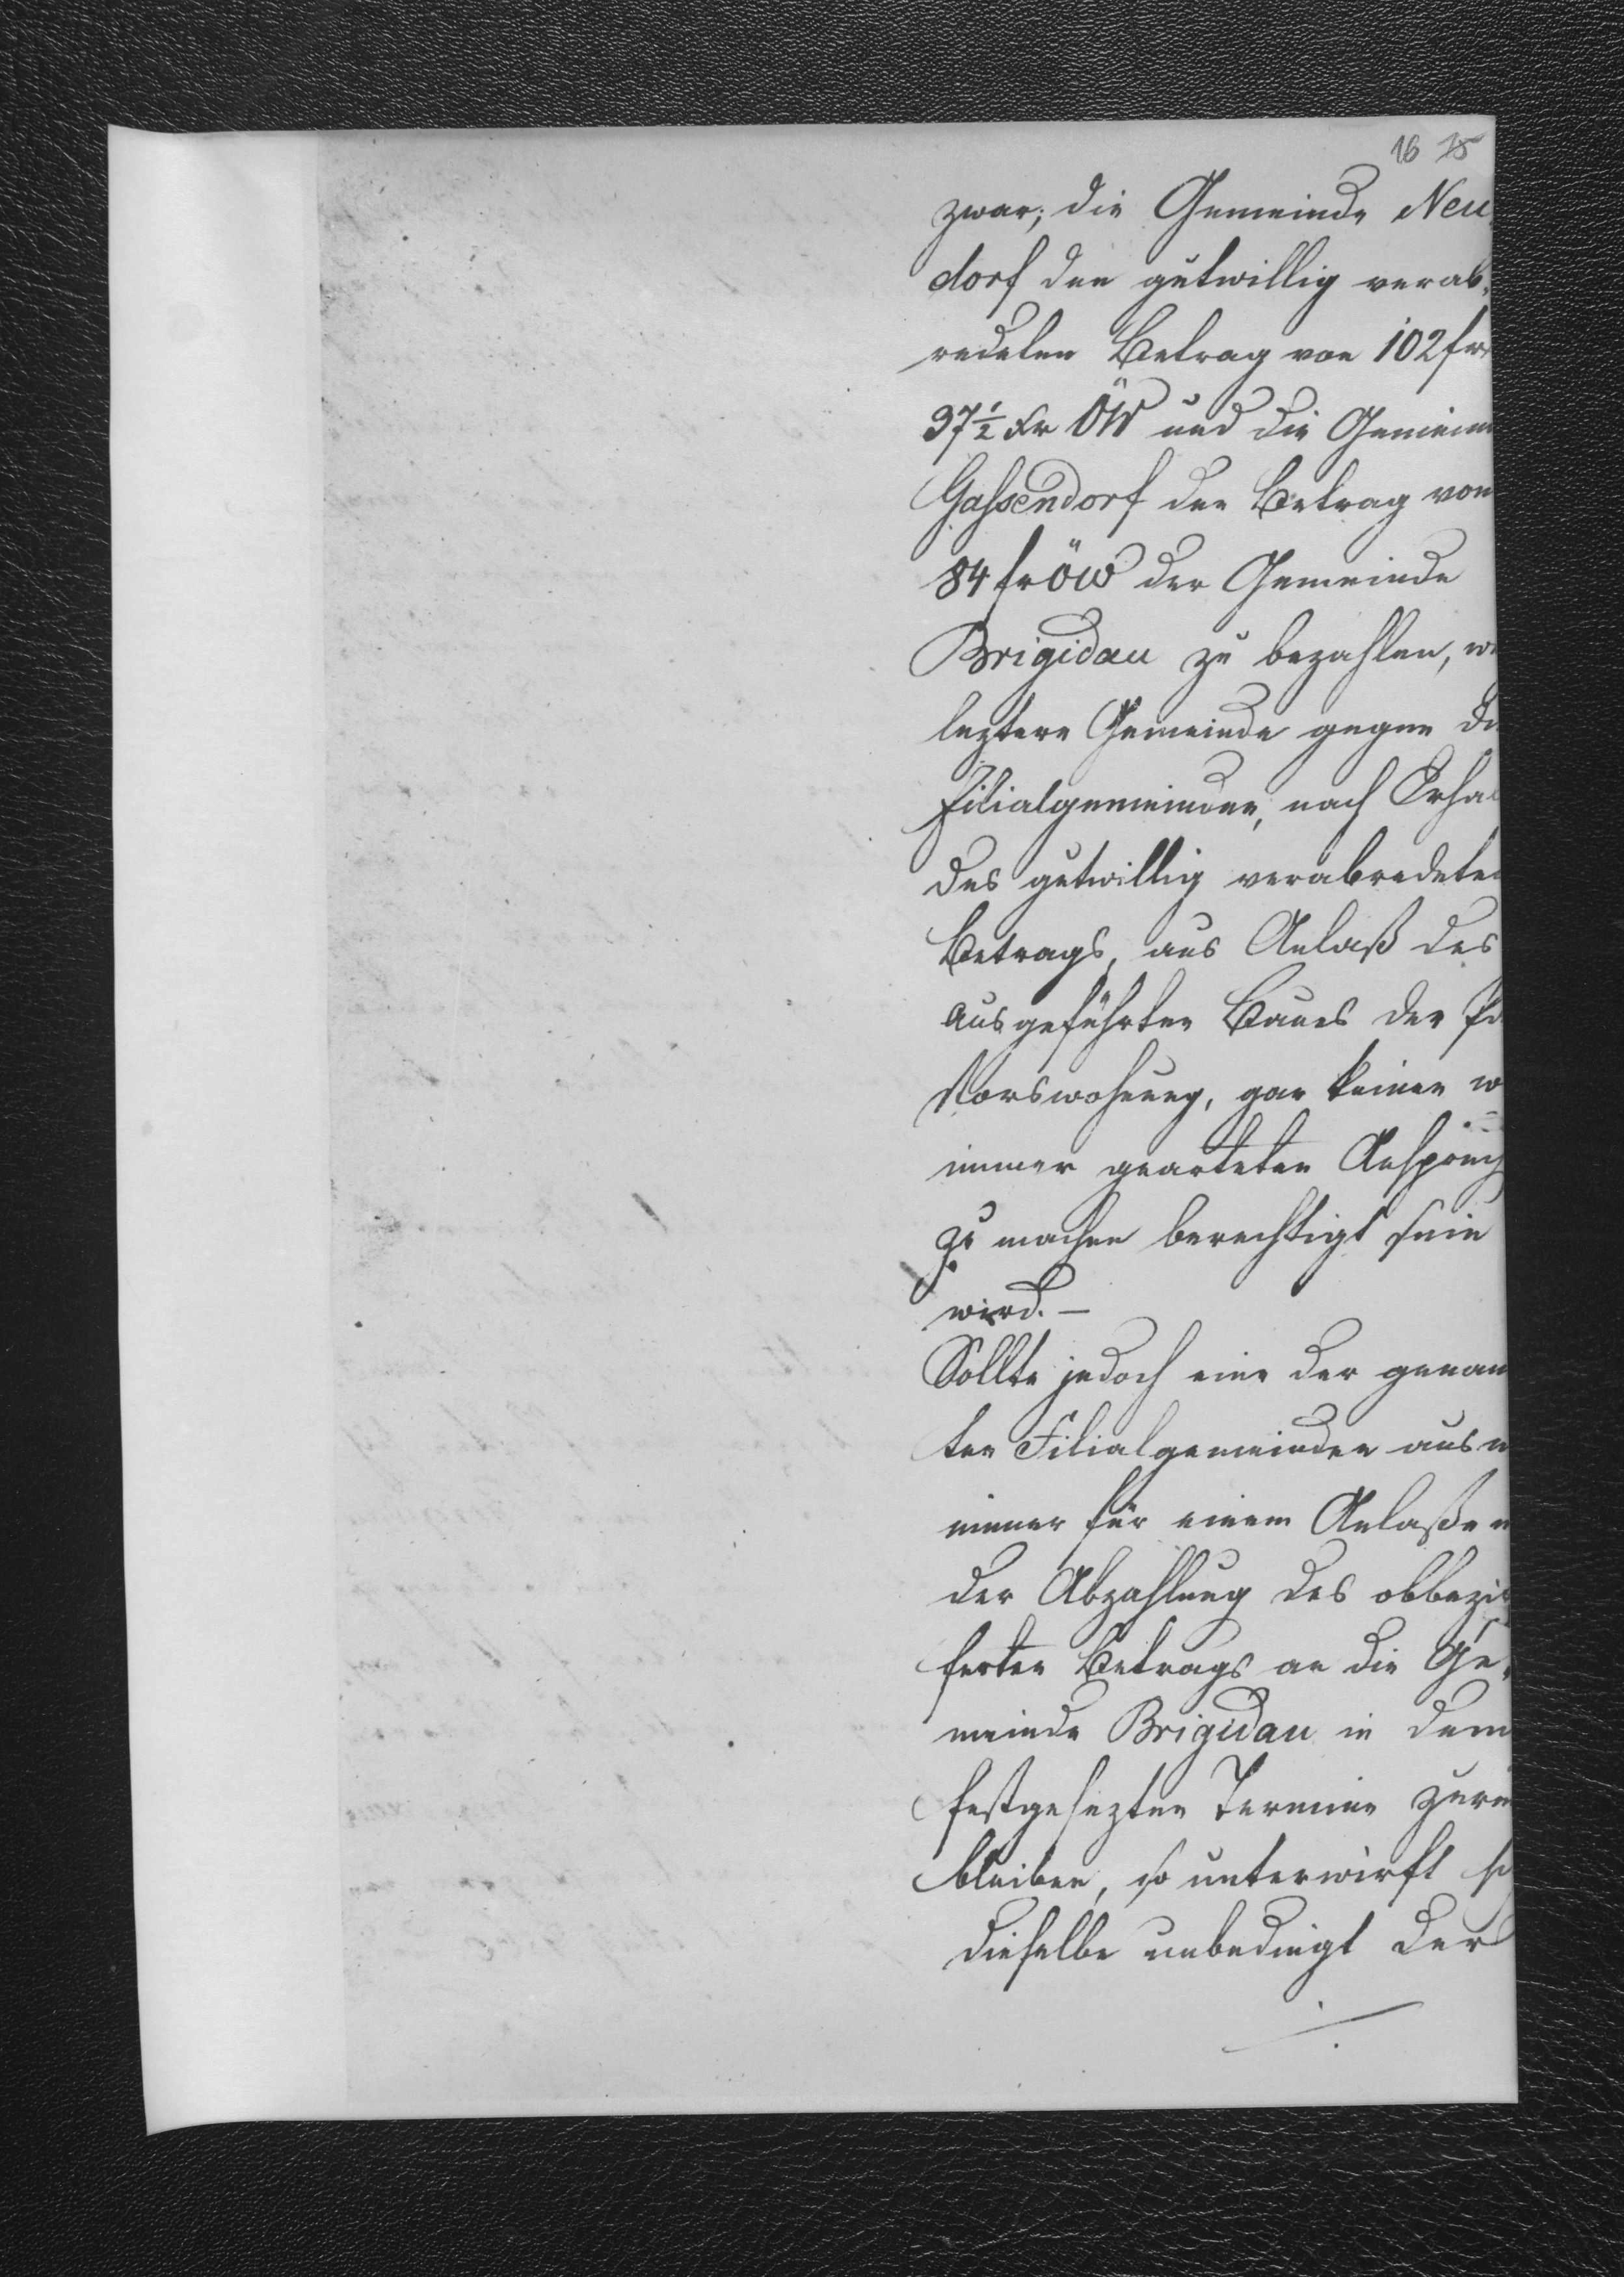 16 15
zwar, die Gemeinde Neu-
dorf den gutwillig verab-
redeten Betrag von 102 fr
37 1/2 Xr ÖW und die Gemein
Gassendorf den Betrag von
84 fr ÖW der Gemeinde
Brigidau zu bezahlen, wo
leztere Gemeinde gegen di
Filialgemeinden, nach Erhal
des gutwillig verabredeten
Betrags, aus Anlaß des
ausgeführten Baues der Pa
storswohnung, gar keinen w
immer gearteten Anspruch
zu machen berechtigt sein
wird. –
Sollte jedoch eine der genan
ten Filialgemeinden aus w
immer für einem Anlaße m
der Abzahlung des obbezif
ferten Betrags an die Ge-
meinde Brigidau in dem
festgesezten Termine zurü
bleiben, so unterwirft sich
dieselbe unbedingt der
./.